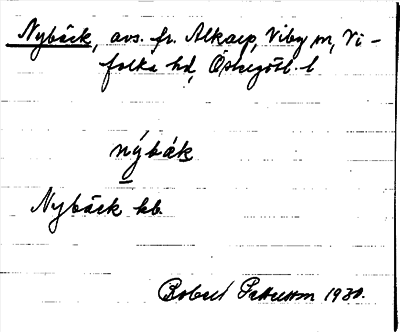 Nybäck, avs. fr. Alkarp, Viby sn, Vi-
folka hd, Östergötl. l.
nýbäk
Nybäck kb.
Robert Pettersson 1930.